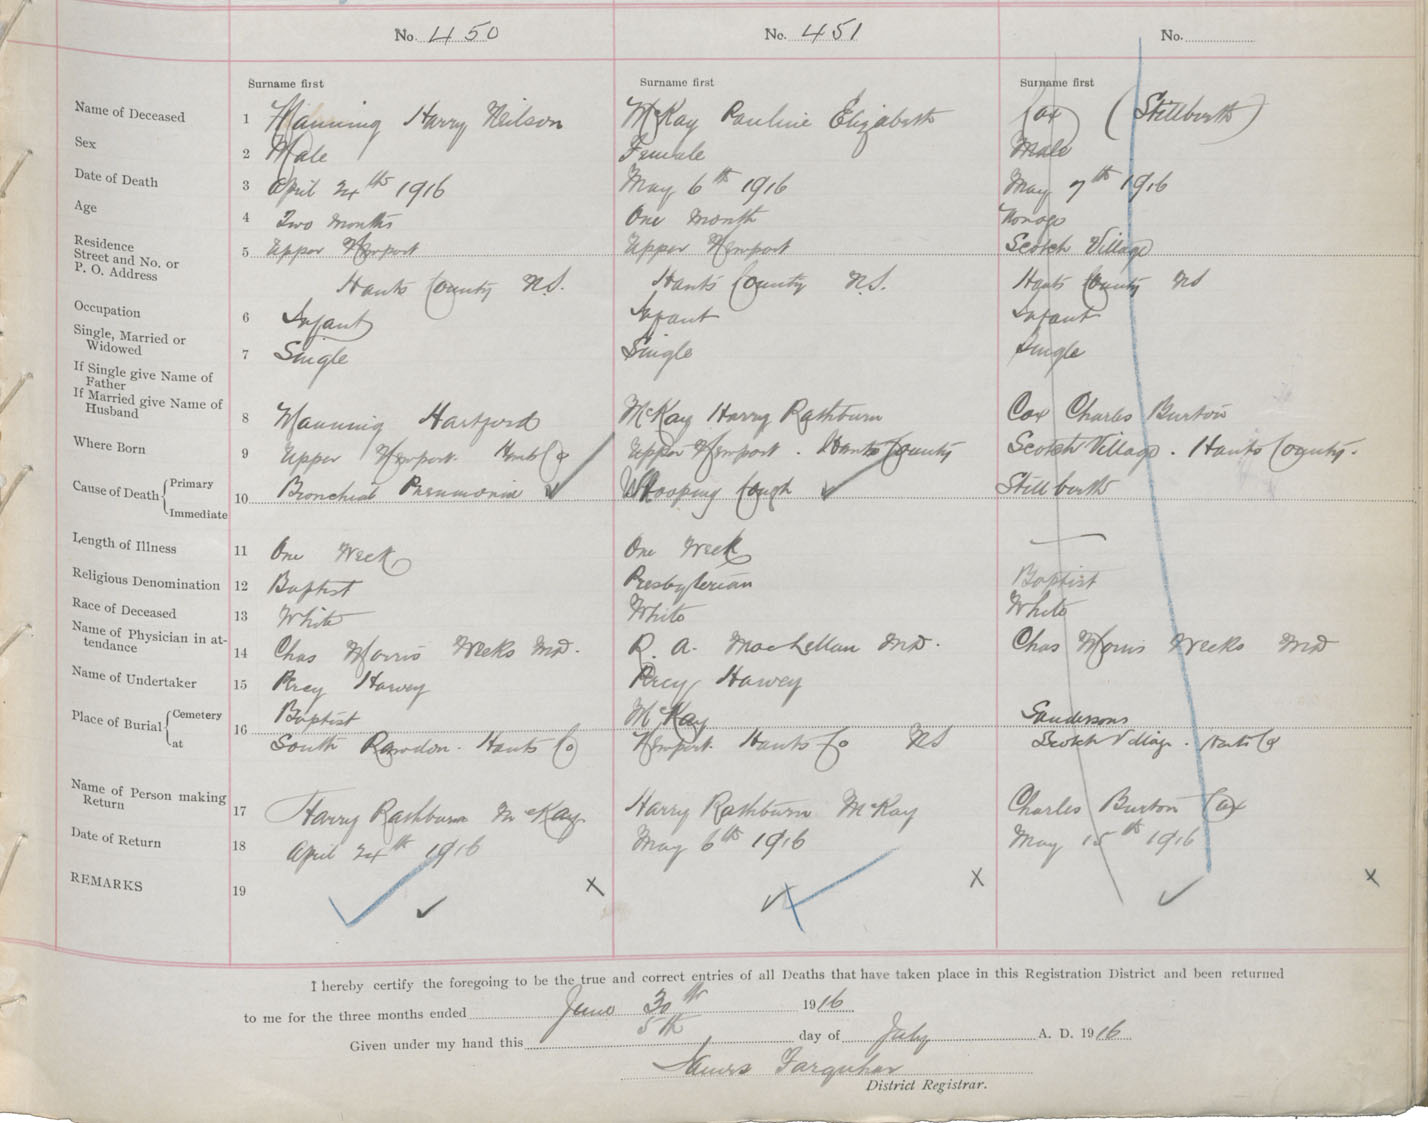 No. 450 No. 451 No.
Surname first Surname first Surname first
Name of Deceased 1 Manning Harry Neilson McKay Pauline Elizabeth Cox (Stillbirth)
Sex 2 Male Female Male
Date of Death 3 April 24th 1916 May 6th 1916 May 7th 1916
Age 4 Two months One month Nonage
Residence
Street and No. or 5 Upper Newport Upper Newport Scotch Village
P. O. Address Hants County N.S. Hants County N.S. Hants County NS
Occupation 6 Infant Infant Infant
Single, Married or
Widowed 7 Single Single Single
If Single give Name of
Father
If Married give Name of
Husband 8 Manning Hartford McKay Harry Rathburn Cox Charles Burton
Where Born 9 Upper Newport. Hants Co Upper Newport. Hants County Scotch Village. Hants County.
Cause of Death { Primary 10 Bronchial Pneumonia ✓ Whooping Cough ✓ Stillbirth
Immediate
Length of Illness 11 One Week One Week —
Religious Denomination 12 Baptist Presbyterian Baptist
Race of Deceased 13 White White White
Name of Physician in at-
tendance 14 Chas Morris Weeks MD. R. A. MacLellan MD. Chas Morris Weeks MD
Name of Undertaker 15 Percy Harvey Percy Harvey
Place of Burial { Cemetery 16 Baptist McKay Sandersons
at South Rawdon. Hants Co Newport. Hants Co NS Scotch Village. Hants Co
Name of Person making
Return 17 Harry Rathburn McKay Harry Rathburn McKay Charles Burton Cox
Date of Return 18 April 24th 1916 May 6th 1916 May 15th 1916
REMARKS 19 ✓ ✓ x ✓ x ✓ x
I hereby certify the foregoing to be the true and correct entries of all Deaths that have taken place in this Registration District and been returned
to me for the three months ended June 30th 1916
Given under my hand this 5th day of July A. D. 1916
James Farquhar
District Registrar.